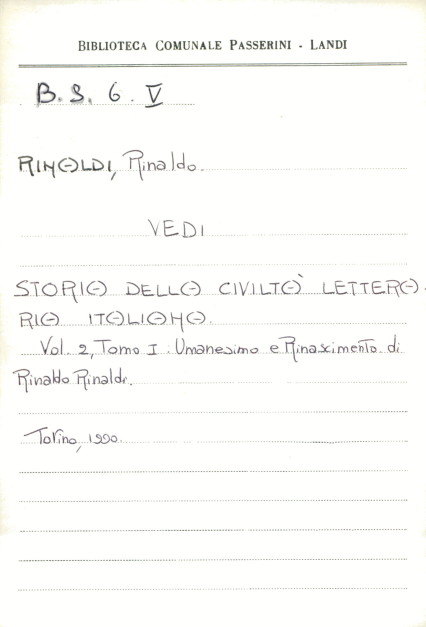 BIBLIOTECA COMUNALE PASSERINI - LANDI
B. S. 6. V
RINALDI, Rinaldo.
VEDI
STORIA DELLA CIVILTÀ LETTERA-
RIA ITALIANA.
Vol. 2, Tomo I: Umanesimo e Rinascimento. di
Rinaldo Rinaldi.
Torino, 1990.